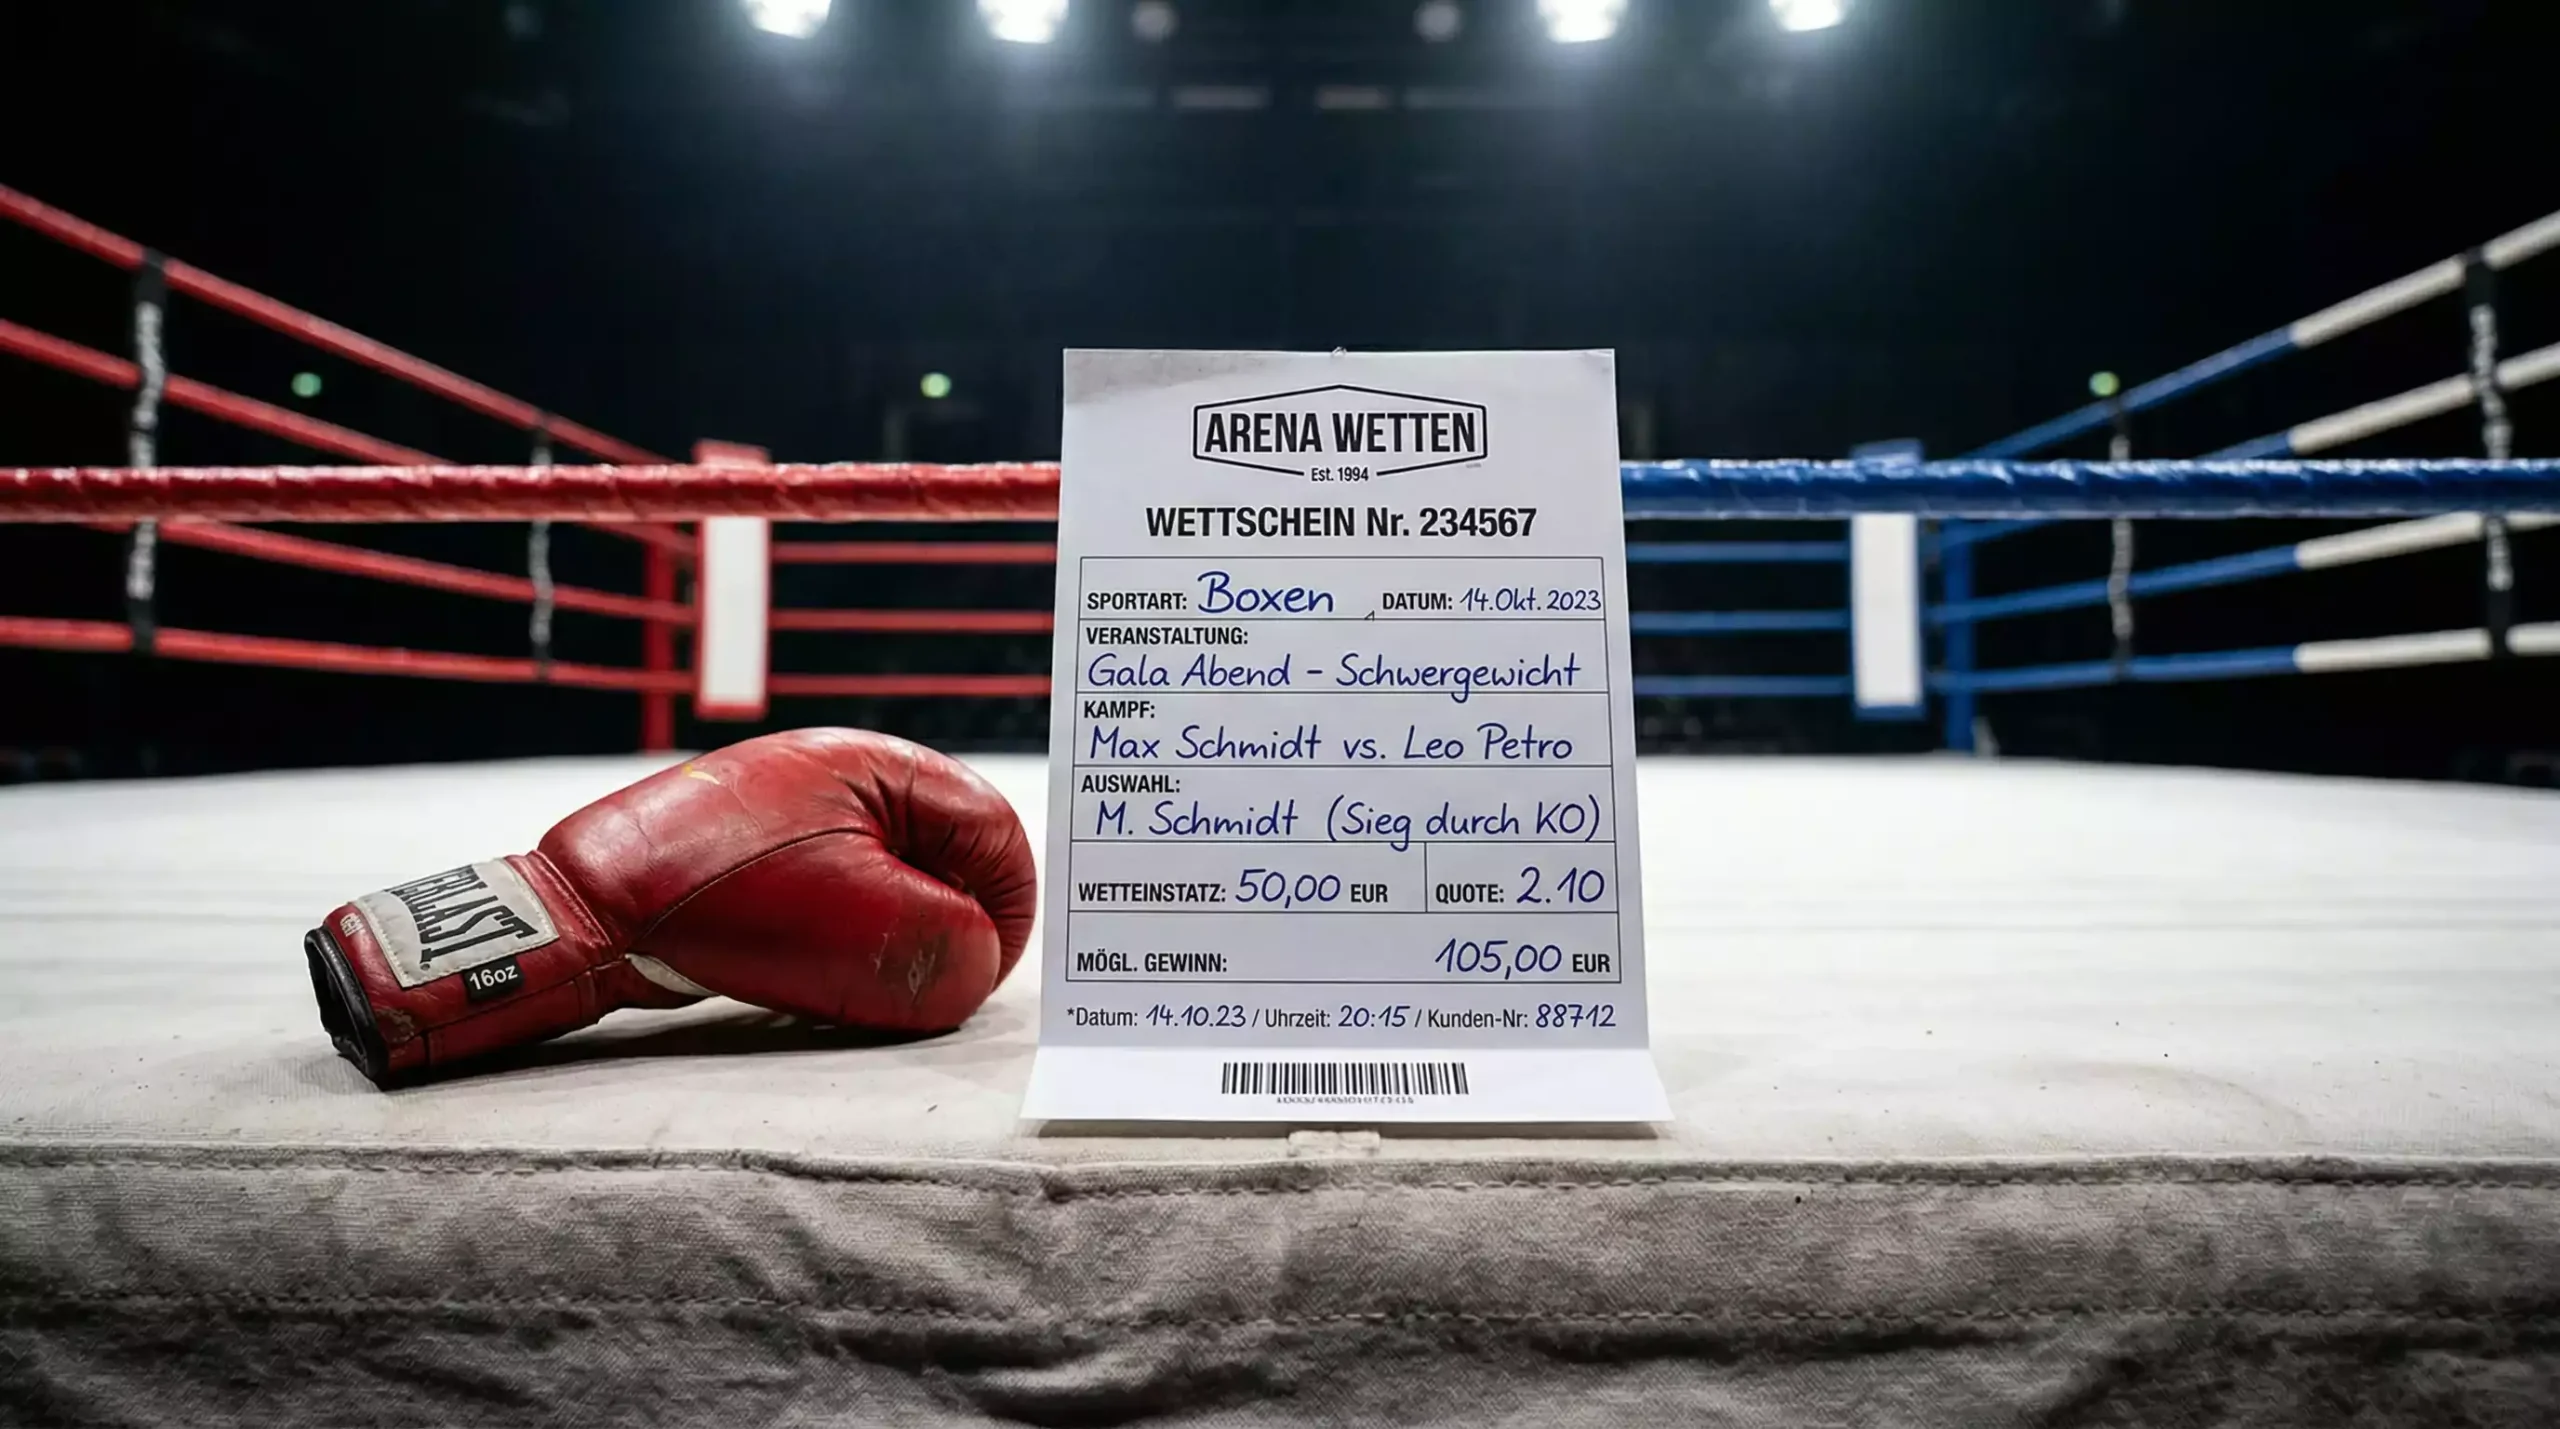 ARENA WETTEN
Est. 1994
WETTSCHEIN Nr. 234567
SPORTART: Boxen DATUM: 14.Okt. 2023
VERANSTALTUNG:
Gala Abend - Schwergewicht
KAMPF:
Max Schmidt vs. Leo Petro
AUSWAHL:
M. Schmidt (Sieg durch KO)
WETTEINSTATZ: 50,00 EUR QUOTE: 2.10
MÖGL. GEWINN: 105,00 EUR
*Datum: 14.10.23 / Uhrzeit: 20:15 / Kunden-Nr: 88712
16oz